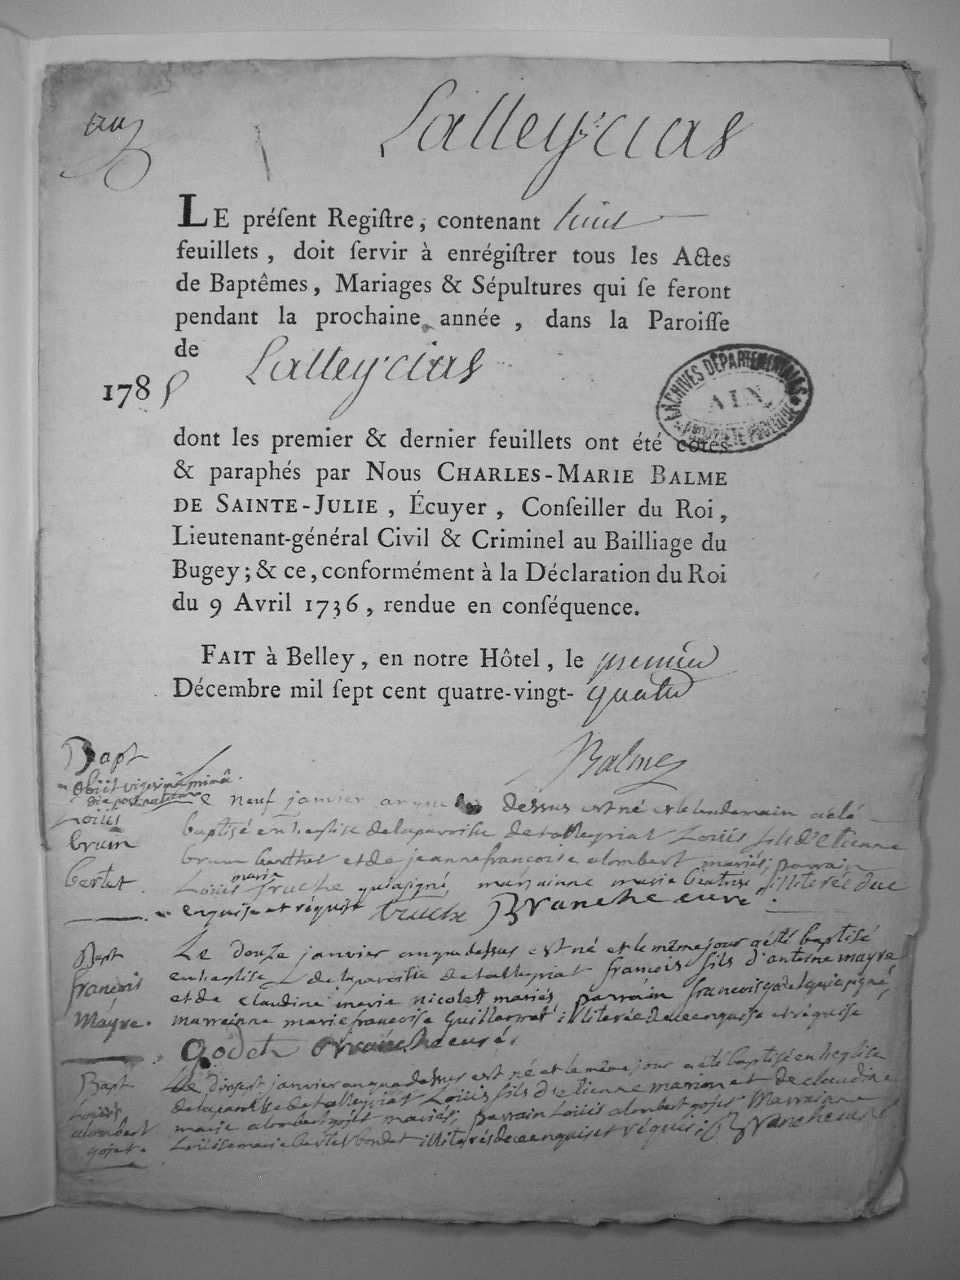 Lalleyrias
LE préſent Regiſtre, contenant huit
feuillets, doit ſervir à enrégiſtrer tous les Actes
de Baptêmes, Mariages & Sépultures qui ſe feront
pendant la prochaine année, dans la Paroiſſe
de Lalleyrias
1785
ARCHIVES DÉPARTEMENTALES
AIN
PROPRIÉTÉ PUBLIQUE
dont les premier & dernier feuillets ont été cotés
& paraphés par Nous CHARLES-MARIE BALME
DE SAINTE-JULIE, Écuyer, Conſeiller du Roi,
Lieutenant-général Civil & Criminel au Bailliage du
Bugey; & ce, conformément à la Déclaration du Roi
du 9 Avril 1736, rendue en conſéquence.
FAIT à Belley, en notre Hôtel, le premier
Décembre mil ſept cent quatre-vingt-quatre
Balme
Bapt
Loüis
brun
bertet.
Le neuf janvier an que dessus est né et le lendemain a été
baptisé en l'eglise de la paroisse de talleyriat Loüis fils d'etienne
brun et de jeanne françoise alombert mariés, parrain
Loüis marie truche qui a signé, marrainne marie illiterée due
enquise et réquise truche Branche curé.
Bapt
françois
Mayre.
Le douze janvier an que dessus est né et le même jour a été baptisé
en l'eglise de la paroisse de talleyriat françois fils d'antoine mayre
et de claudine marie nicolet mariés, parrain françois godet qui a signé,
marrainne marie françoise Guillermet illiterée de ce enquise et réquise
godet Branche curé.
Bapt
Loüis
alombert
gojet.
Le dixsept janvier an que dessus est né et le même jour a été baptisé en l'eglise
de la paroisse de talleyriat Loüis fils d'etienne marion et de claudine
marie alombert gojet mariés, parrain Loüis alombert gojet Marrainne
Loüise marie bertet illiterés de ce enquis et réquis. Branche curé